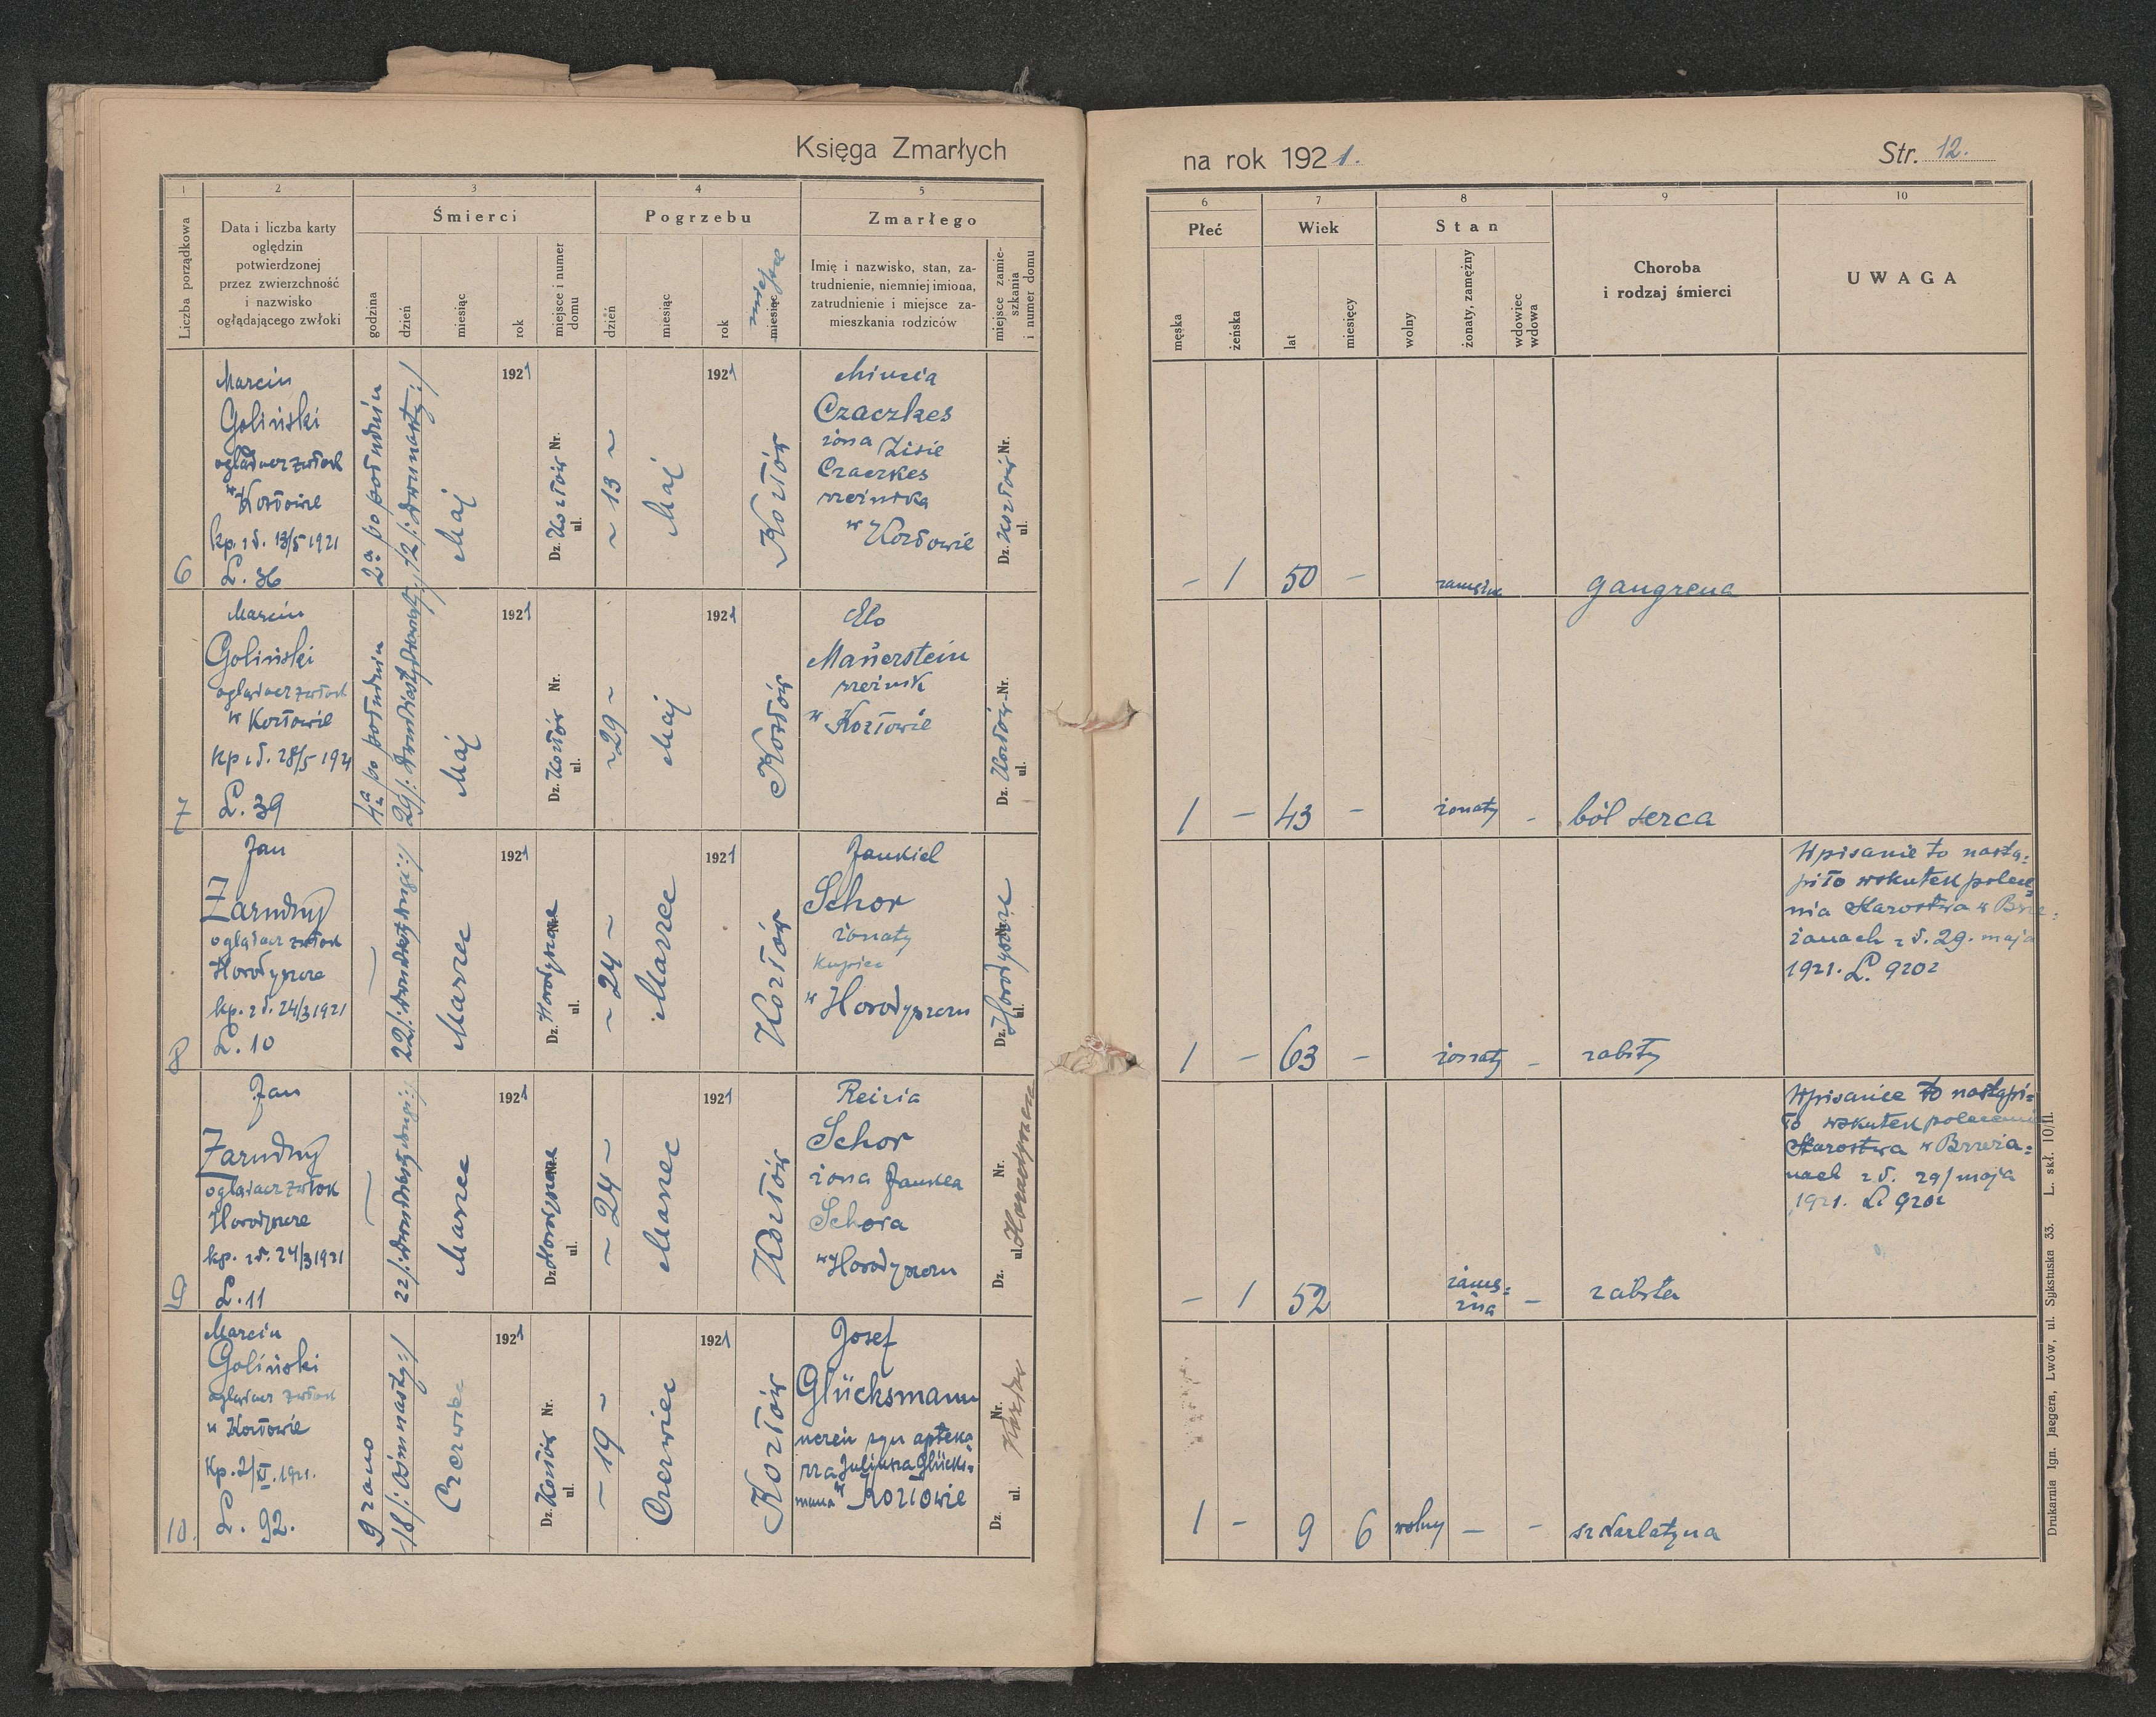 Księga Zmarłych
na rok 1921.
Str. 12.
1
2
3
4
5
6
7
8
9
10
Liczba porządkowa
Data i liczba karty
oględzin
potwierdzonej
przez zwierzchność
i nazwisko
oglądającego zwłoki
Śmierci
godzina
dzień
miesiąc
rok
miejsce i numer
domu
Pogrzebu
dzień
miesiąc
rok
miesiąc
miejsce
Zmarłego
Imię i nazwisko, stan, za-
trudnienie, niemniej imiona,
zatrudnienie i miejsce za-
mieszkania rodziców
miejsce zamie-
szkania
i numer domu
Płeć
męska
żeńska
Wiek
lat
miesięcy
Stan
wolny
żonaty, zamężny
wdowiec
wdowa
Choroba
i rodzaj śmierci
UWAGA
6
Marcin
Goliński
oglądacz zwłok
w Kozłowie
kp. z d. 13/5 1921
L. 36
2ª po południu
12/: dwunasty :/
Maj
1921
Dz. Kozłów Nr.
ul.
~ 13 ~
Maj
1921
Kozłów
Czaczkes
żona Zisie
Czaczkes
rzeźnika
w Kozłowie
Dz. Kozłów Nr.
ul.
- 1
50 -
zamężna
gangrena
7
Marcin
Goliński
oglądacz zwłok
w Kozłowie
kp z d. 28/5 1921
L. 39
4ª po południu
Maj
1921
Dz. Kozłów Nr.
ul.
~ 29 ~
Maj
1921
Kozłów
Elo
Mauerstein
rzeźnik
w Kozłowie
Dz. Kozłów Nr.
ul.
1 -
43 -
żonaty -
ból serca
8
Jan
Zarudny
oglądacz zwłok
Horodyszcze
kp. z d. 24/3 1921
L. 10
22/: dwudziesty drugi :/
Marzec
1921
Dz. Horodyszcze Nr.
ul.
~ 24 ~
Marzec
1921
Kozłów
Jankiel
Schor
żonaty
kupiec
w Horodyszczu
Dz. Horodyszcze Nr.
ul.
1 -
63 -
żonaty -
zabity
Wpisanie to nastą=
piło wskutek polece=
nia Starostwa w Brze=
żanach z d. 29. maja
1921. L. 9202
9
Jan
Zarudny
oglądacz zwłok
Horodyszcze
kp. z d. 24/3 1921
L. 11
22/: dwudziesty drugi :/
Marzec
1921
Dz. Horodyszcze Nr.
ul.
~ 24 ~
Marzec
1921
Kozłów
Reizia
Schor
żona Jankla
Schora
w Horodyszczu
Dz. Nr.
ul. Horodyszcze
- 1
52
zamę=
żna -
zabita
Wpisanie to nastąpi=
ło wskutek polecenia
Starostwa w Brzeża=
nach z d. 29/ maja
1921. L 9202
10.
Marcin
Goliński
oglądacz zwłok
w Kozłowie
L. 92.
9 rano
18/: ósmnasty :/
Czerwiec
1921
Dz. Kozłów Nr.
ul.
~ 19 ~
Czerwiec
1921
Kozłów
Josef
Glücksmann
uczeń syn apteka
rza Juljusza Glücks=
mana w Kozłowie
Dz. Nr.
ul. Kozłów
1 -
9 6
wolny - -
szkarlatyna
Drukarnia Ign. Jaegera, Lwów, ul. Sykstuska 33. L. skł. 10/II.